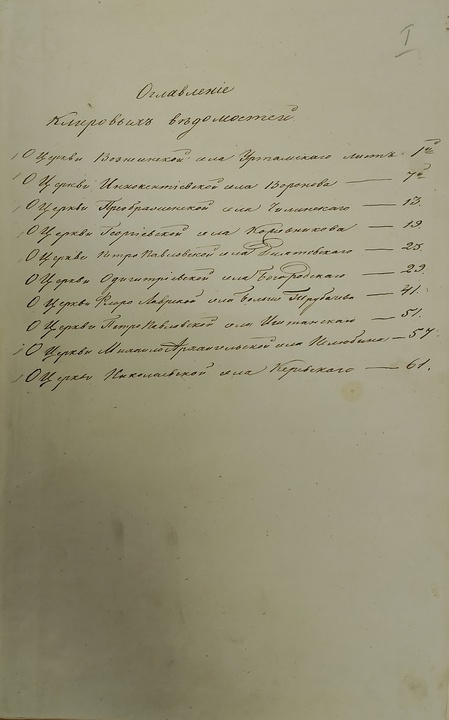 I
Оглавленіе
Клировыхъ вѣдомостей
О Церкви села Уртамскаго листъ 1й
О Церкви Иннокентіевской села Воронова — 7й
О Церкви Преображенской села Чилинскаго — 13.
О Церкви Георгіевской села Коровникова — 19
О Церкви Петро Павловской села — 25
О Церкви Одигитріевской села Богородскаго — 29.
О Церкви Флоро Лаврской села Больше Трубачева — 41.
О Церкви Петро Павловской села Иштанскаго — 51.
О Церкви Михаило Архангельской села — 57
О Церкви Николаевской села — 61.